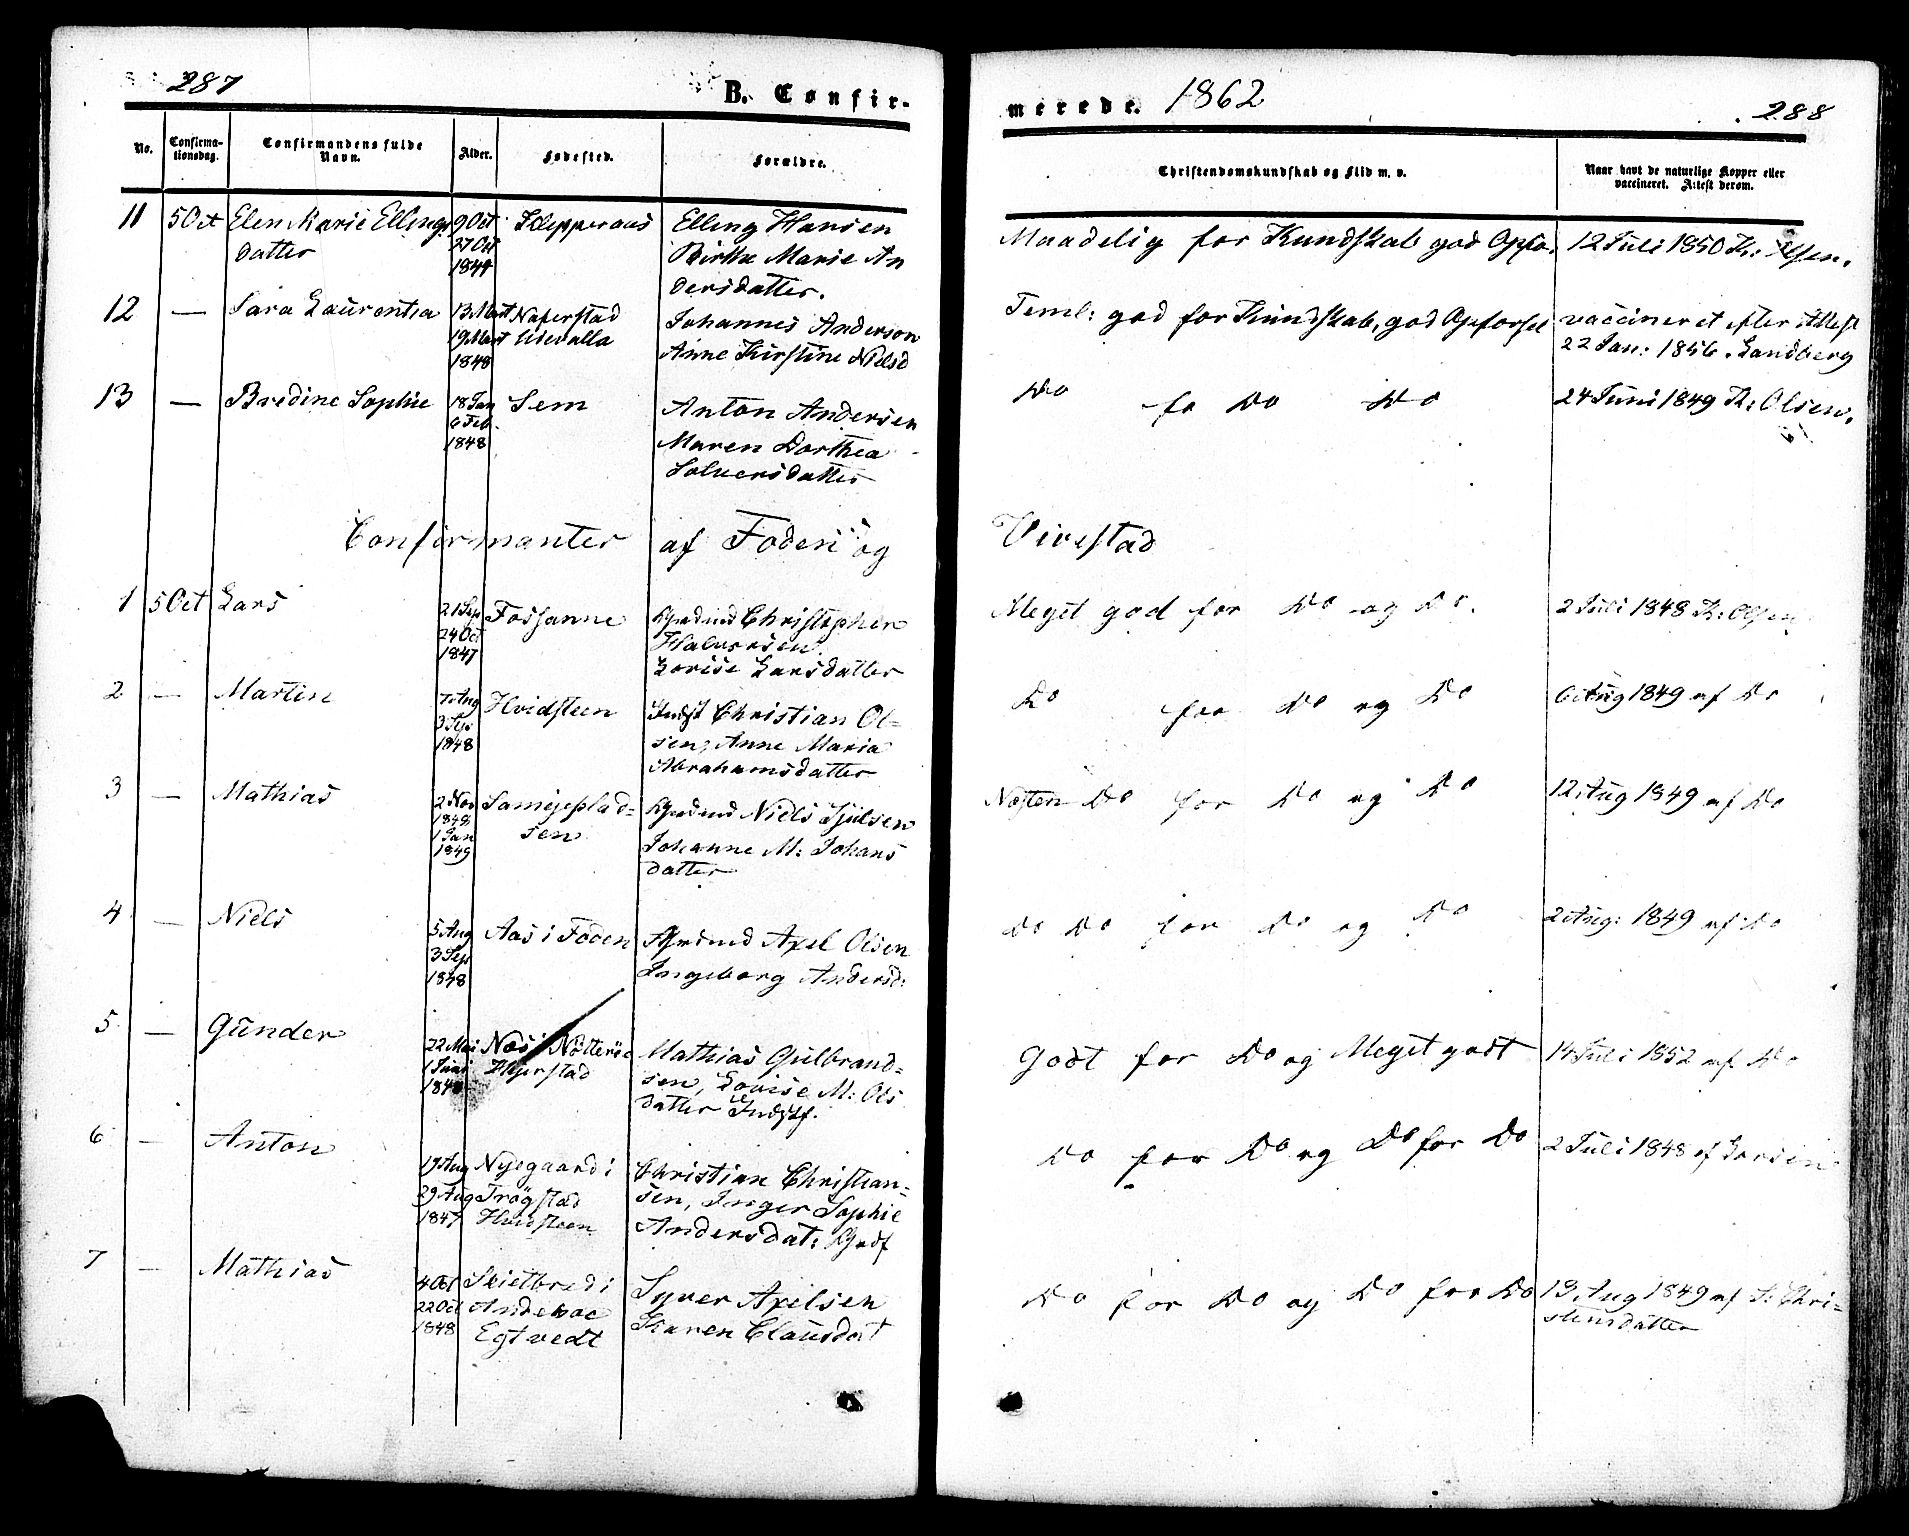 287
B. Confir-
No.
Confirma-
tionsdag.
Confirmandens fulde
Navn.
Alder.
Fødested.
Forældre.
11 5 Oct Elen Marie Ellings
datter
9 Oct
27 Oct
1847
Klepperaas
Elling Hansen
Birthe Marie An
dersdatter.
12 — Sara Laurentia
13 Mart
19 Mart
1848
Naferstad
Udevalla
Johannes Anderson
Anne Kirstine Nielsd
13 — Bredine Sophie
18 Jan
6 Feb.
1848
Sem
Anton Andersen
Maren Dorthea
Solversdatter
Confirmanter af Foden og
1 5 Oct Lars
21 Sep
24 Oct
1847
Fossanne
Gmd Christopher
Halvorsen
Lovise Larsdatter
2 — Martin
7 Aug
3 Sep
1848
Hvidsteen
Indst Christian Ol-
sen, Anne Maria
Abrahamsdatter
3 — Mathias
2 Nov
1848
1 Jan
1849
Samejeplad-
sen
Niels Julsen
Johanne M: Johans
datter
4 — Niels
5 Aug
3 Sep
1848
Aas i Foden
Axel Olsen
Ingeborg Andersd:
5 — Gunder
22 Mai
1 Juni
1848
Næs i Nötterö
Mathias Gulbrand-
sen, Lovise M: Ols
datter Indstf.
6 — Anton
19 Aug
29 Aug
1847
Nyegaard i
Trögstad
Hvidsteen
Christian Christian-
sen, Inger Sophie
Andersdat:
7 — Mathias
4 Oct
22 Oct
1848
Skielbred i
Andeboe
Egtvedt
Syver Axelsen
Karen Clausdat
merede. 1862
288
Christendomskundskab og Flid m. v.
Naar havt de naturlige Kopper eller
vaccineret. Attest derom.
Maadelig for Kundskab god Opfø. 12 Juli 1850 K: Olsen.
Teml: god for Kundskab, god Opførsel vaccineret efter Attest
22 Jan: 1856. Sandberg
Do fo Do Do 24 Juni 1849 K: Olsen.
Virestad
Meget god for Do og Do. 2 Juli 1848 K: Olsen
Do for Do og Do 6 Aug 1849 af Do
Næsten Do for Do og Do 12 Aug 1849 af Do
Do Do for Do og Do 2 Aug: 1849 af Do
Godt for Do og Meget godt 14 Juli 1852 af Do
Do for Do og Do for Do 2 Juli 1848 af Larsen
Do for Do og Do for Do 13 Aug 1849 af S: Chri-
stensdatter